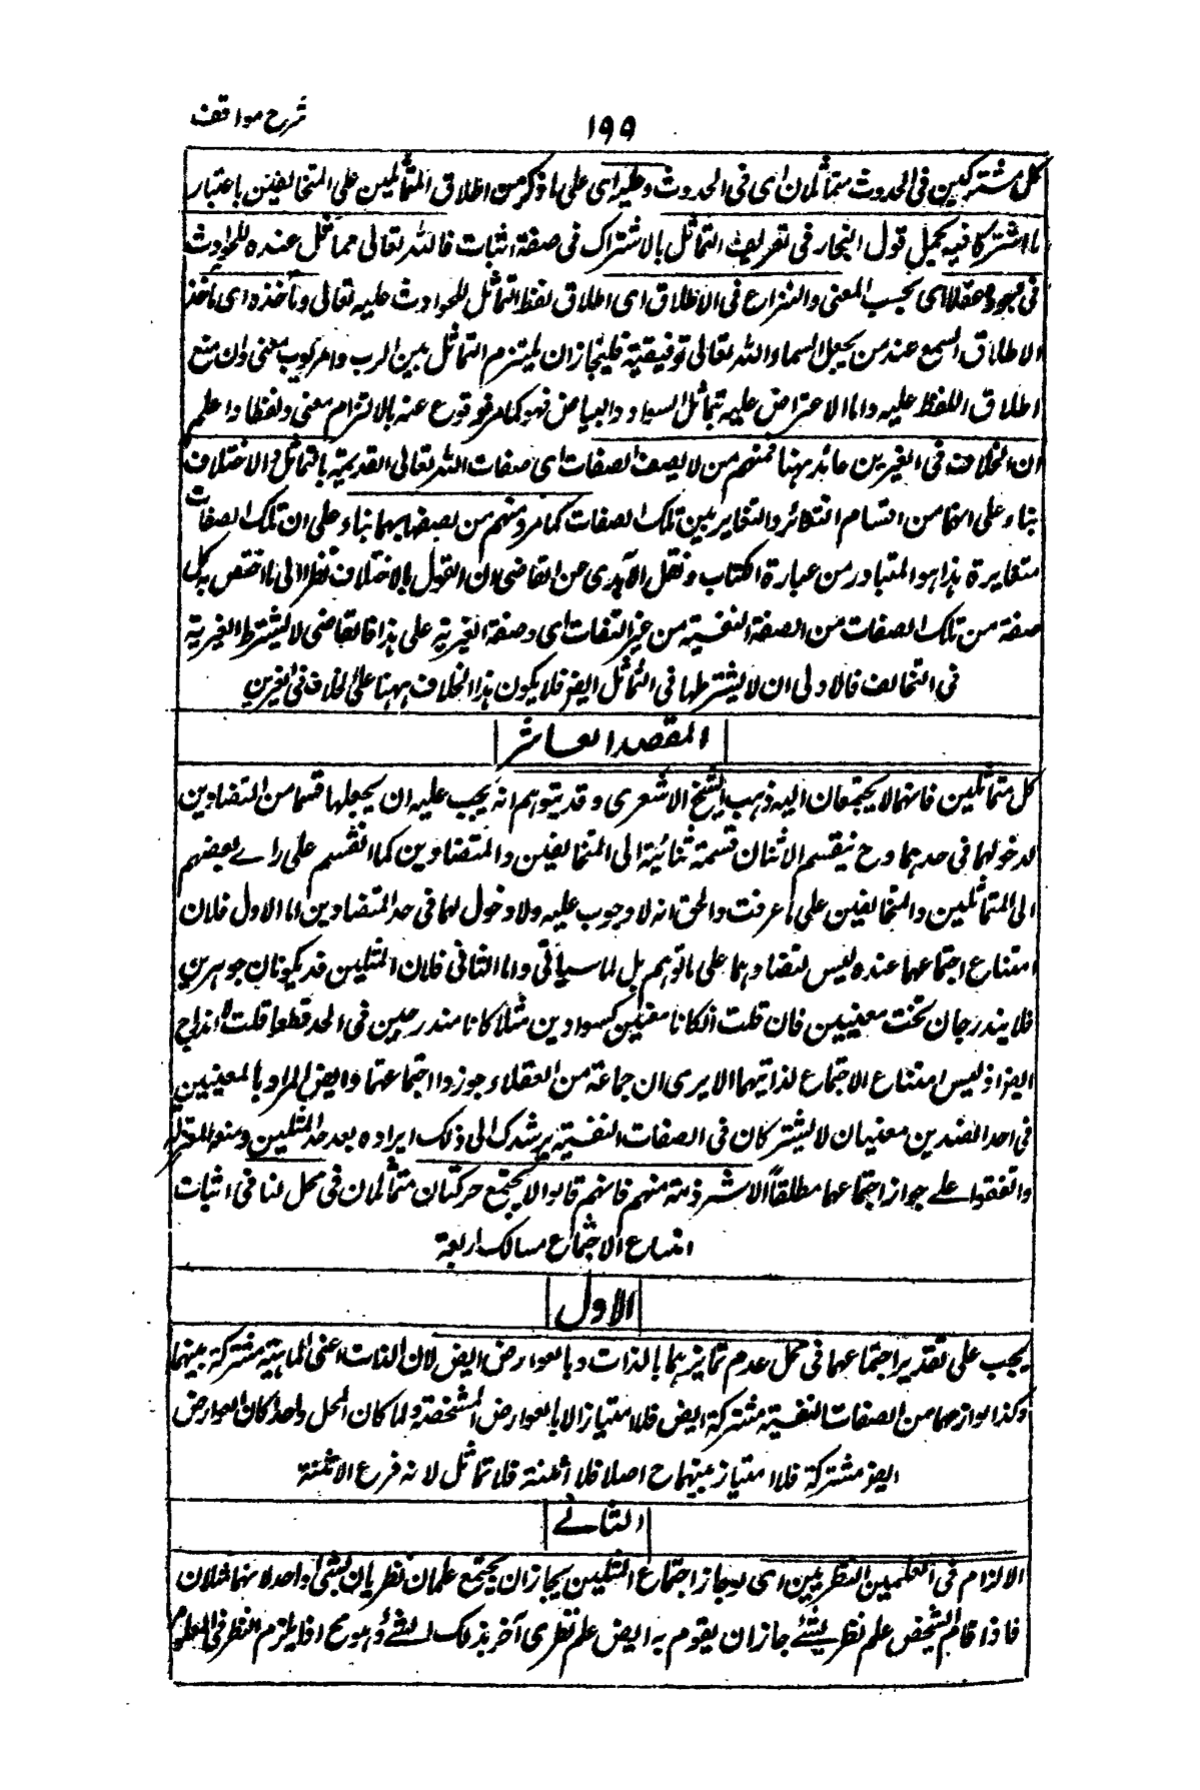 شرح مواقف
١٩٩
كل مشتركين فى الحدوث متماثلان اى فى الحدوث وعليه اى على ما ذكر من اطلاق المتماثلين على المتخالفين باعتبار
ما اشتركا فيه يحمل قول النجار فى تعريف التماثل بالاشتراك فى صفة اثبات فالله تعالى مماثل عنده للحوادث
فى وجوده عقلا اى بحسب المعنى والنزاع فى الاطلاق اى اطلاق لفظ التماثل للحوادث عليه تعالى ومأخذه اى مأخذ
الاطلاق السمع عند من يجعل اسماء الله تعالى توقيفية فليجاز ان يلتزم التماثل بين الرب والمربوب معنى وان منع
اطلاق اللفظ عليه واما الاعتراض عليه بتماثل السواد والبياض فهو كما مر مرفوع عنه بالالتزام معنى ولفظا واعلم
ان الخلاف فى الغيرين عائد ههنا فمنهم من لا يصف الصفات اى صفات الله تعالى القديمة بالتماثل والاختلاف
بناء على انهما من اقسام التكاثر والتغاير بين تلك الصفات كما مر ومنهم من يصفها بهما بناء على ان تلك الصفات
متغايرة هذا هو المتبادر من عبارة الكتاب ونقل الآمدى عن القاضى ان القول بالاختلاف نظرا الى ما اختص به كل
صفة من تلك الصفات من الصفة النفسية من غير التفات اى وصفة الغيرية على هذا فالقاضى لا يشترط الغيرية
فى التخالف فالاولى ان لا يشترطها فى التماثل ايض فلا يكون هذا الخلاف ههنا على الخلاف فى الغيرين
المقصد العاشر
كل متماثلين فانهما لا يجتمعان اليه ذهب الشيخ الاشعرى وقد يتوهم انه يجب عليه ان يجعلهما قسما من المتضادين
لدخولهما فى حدهما وح ينقسم الاثنان قسمة ثنائية الى المتخالفين والمتضادين كما انقسم على راے بعضهم
الى المتماثلين والمتخالفين على ما عرفت والحق انه لا وجوب عليه ولا دخول لهما فى حد المتضادين اما الاول فلان
امتناع اجتماعهما عنده ليس لتضادهما على ما توهم بل لما سيأتى واما الثانى فلان المثلين قد يكونان جوهرين
فلا يندرجان تحت معنيين فان قلت اذا كانا معنيين كسوادين مثلا كانا مندرجين فى الحد قطعا قلت لا اندراج
ايض اذ ليس امتناع الاجتماع لذاتيهما الا يرى ان جماعة من العقلاء جوزوا اجتماعهما وايض المراد بالمعنيين
فى احد الضدين معنيان لا يشتركان فى الصفات النفسية يرشدك الى ذلك ايراده بعد حد المثلين ومنعه المعتزلة
واتفقوا علے جواز اجتماعهما مطلقاً الا شرذمة منهم فانهم قالوا لا يجتمع حركتان متماثلتان فى محل لنا فى اثبات
امتناع الاجتماع مسالك اربعة
الاول
يجب على تقدير اجتماعهما فى محل عدم تمايزهما بالذات وبالعوارض ايض لان الذات اعنى الماهية مشتركة بينهما
وكذا لوازمهما من الصفات النفسية مشتركة ايض فلا امتياز الا بالعوارض المشخصة ولما كان المحل واحدا كان العوارض
ايض مشتركة فلا امتياز بينهما ح اصلا فلا اثنينية فلا تماثل لانه فرع الاثنينية
الثانے
الالزام فى العلمين النظريين اى لو جاز اجتماع المثلين يجاز ان يجتمع علمان نظريان بشئ واحد لانهما مثلان
فاذا قام الشخص علم نظرى بشئ جاز ان يقوم به ايض علم نظرى آخر بذلك الشئ وهو مح اذ يلزم النظر فى المعلوم